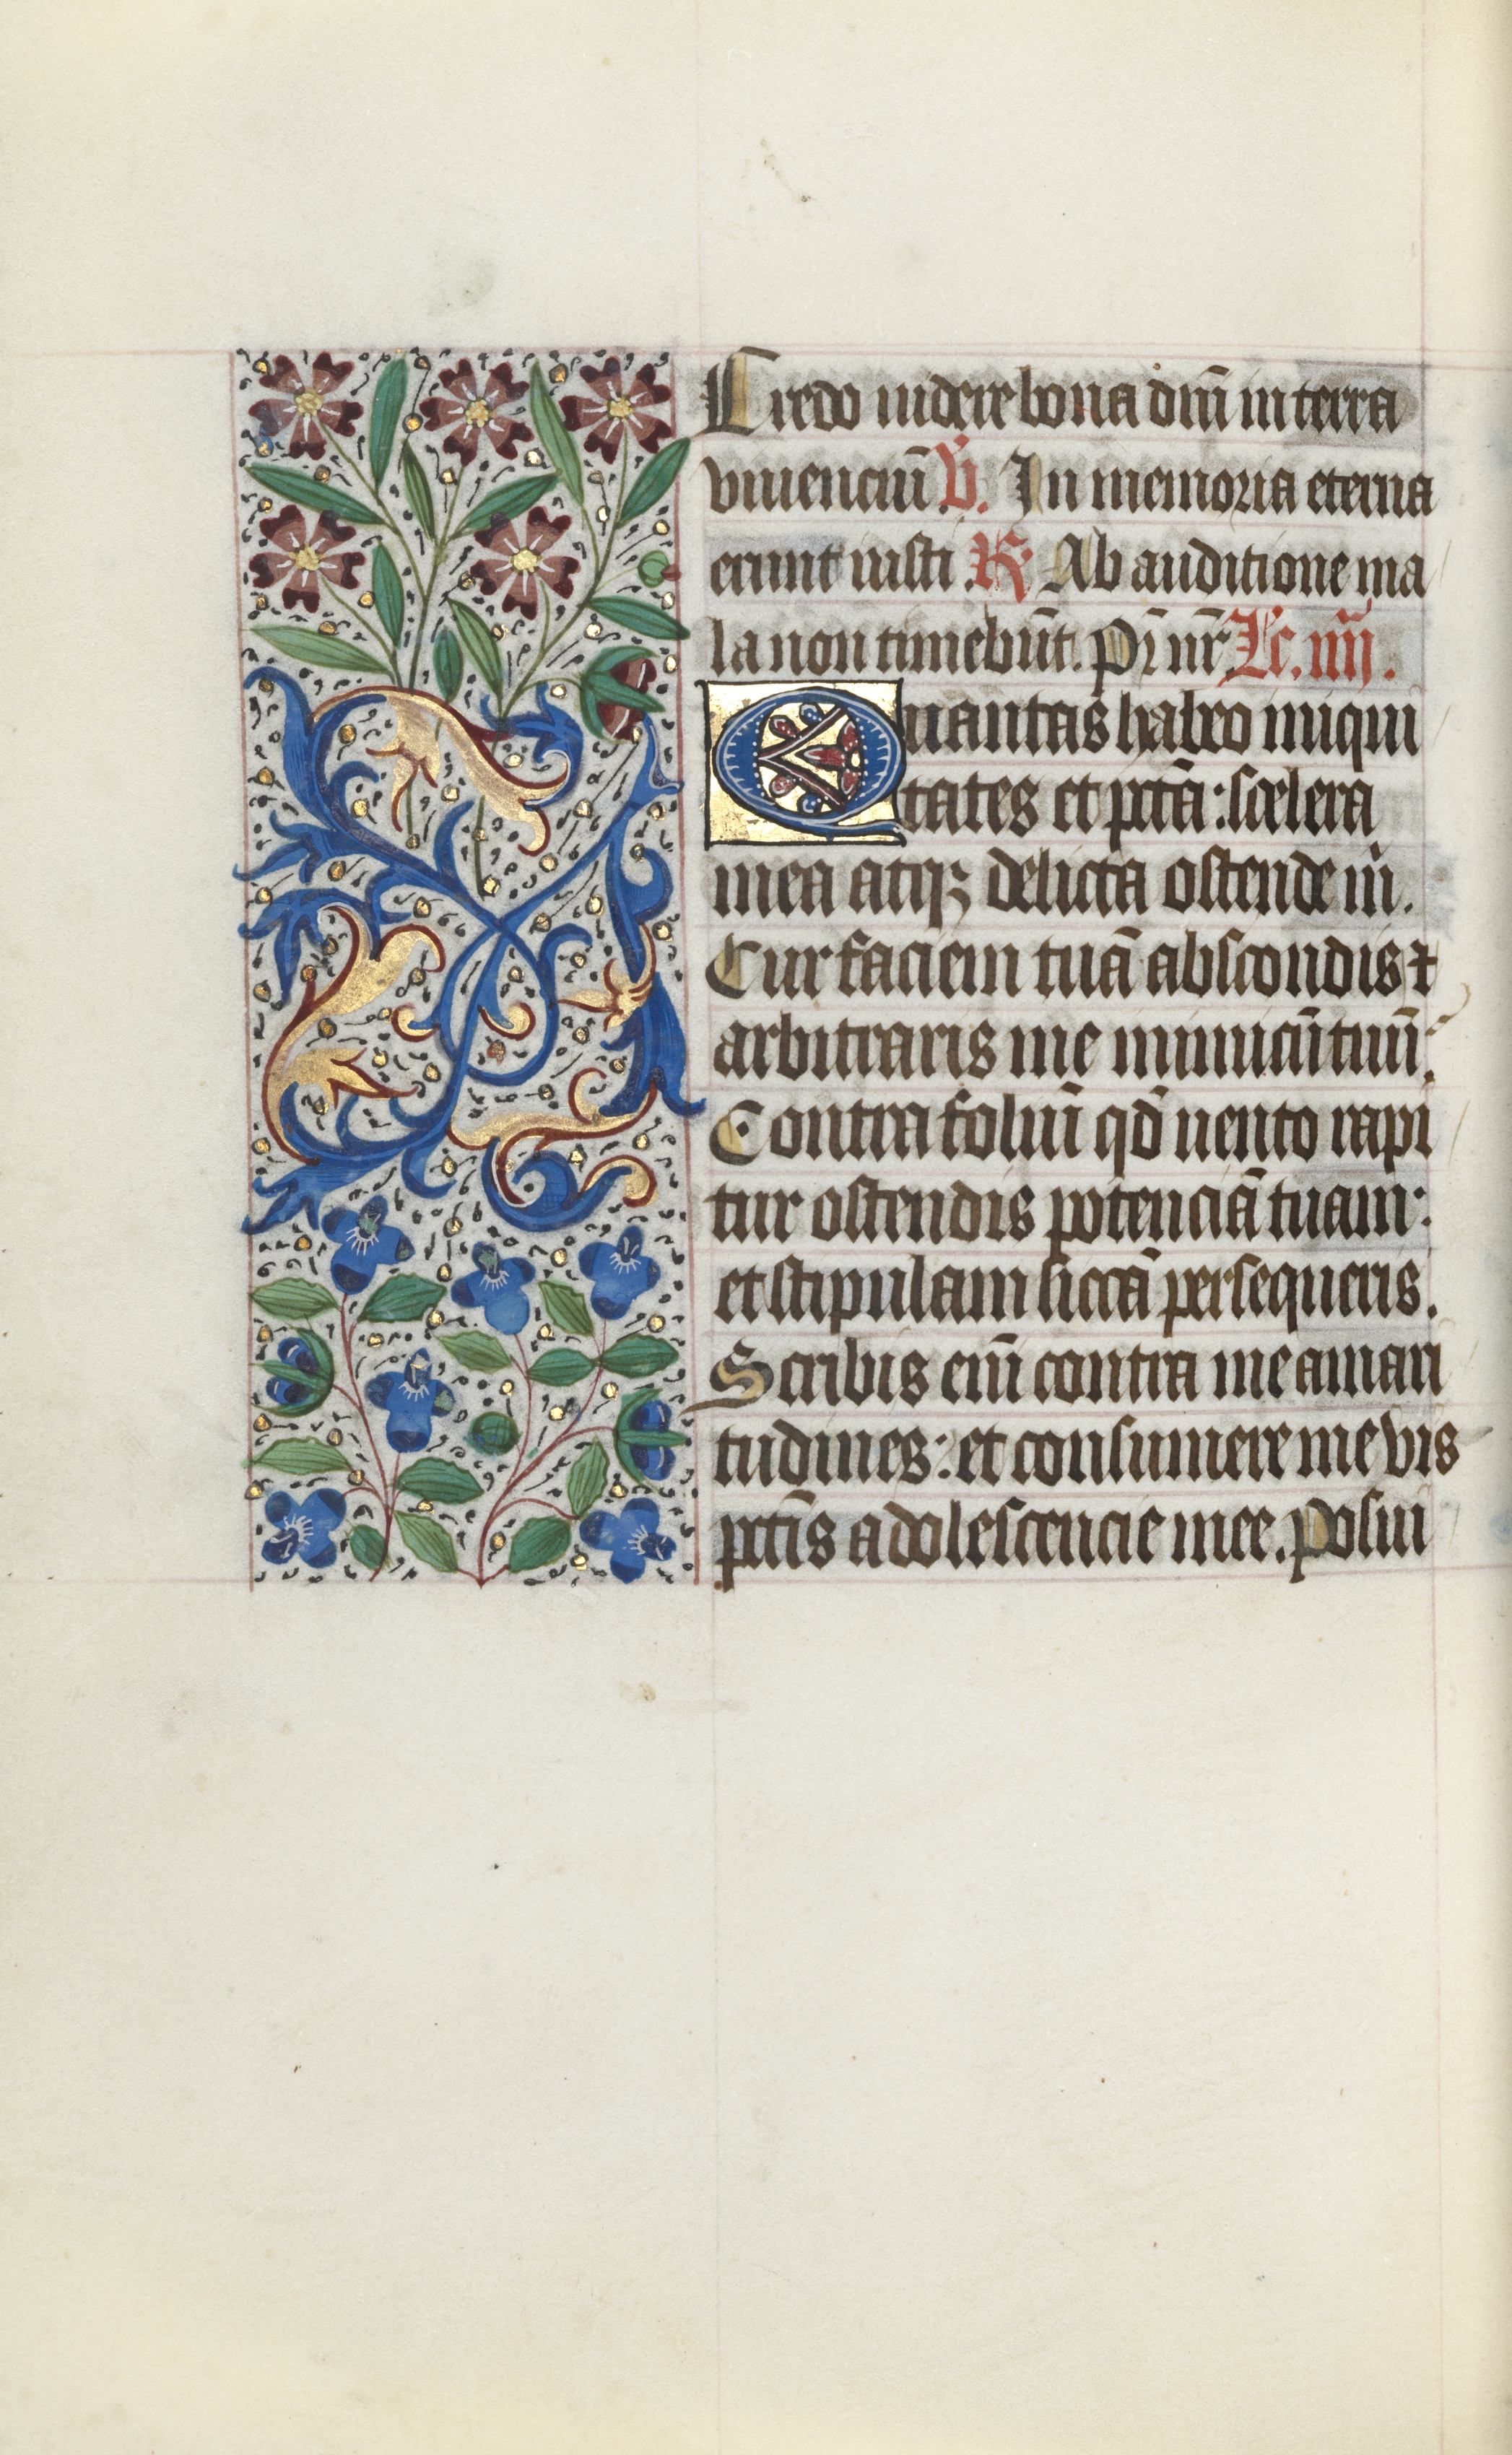 Credo videre bona dn̄i in terra
viuenciū V̄. In memoria eterna
erunt iusti R̄ Ab auditione ma
la non timebūt. Pr̄ nr̄ Lc̄. iiij.
Quantas habeo iniqui
tates et pctā: scelera
mea atqꝫ delicta ostende m̄.
Cur faciem tuā abscondis ⁊
arbitraris me inimicū tuū:
Contra foliū qd̄ uento rapi
tur ostendis potenciā tuam:
et stipulam siccā persequeris.
Scribis eni᷑ contra me amari
tudines: et consumere me vis
pctīs adolescencie mee. Posui